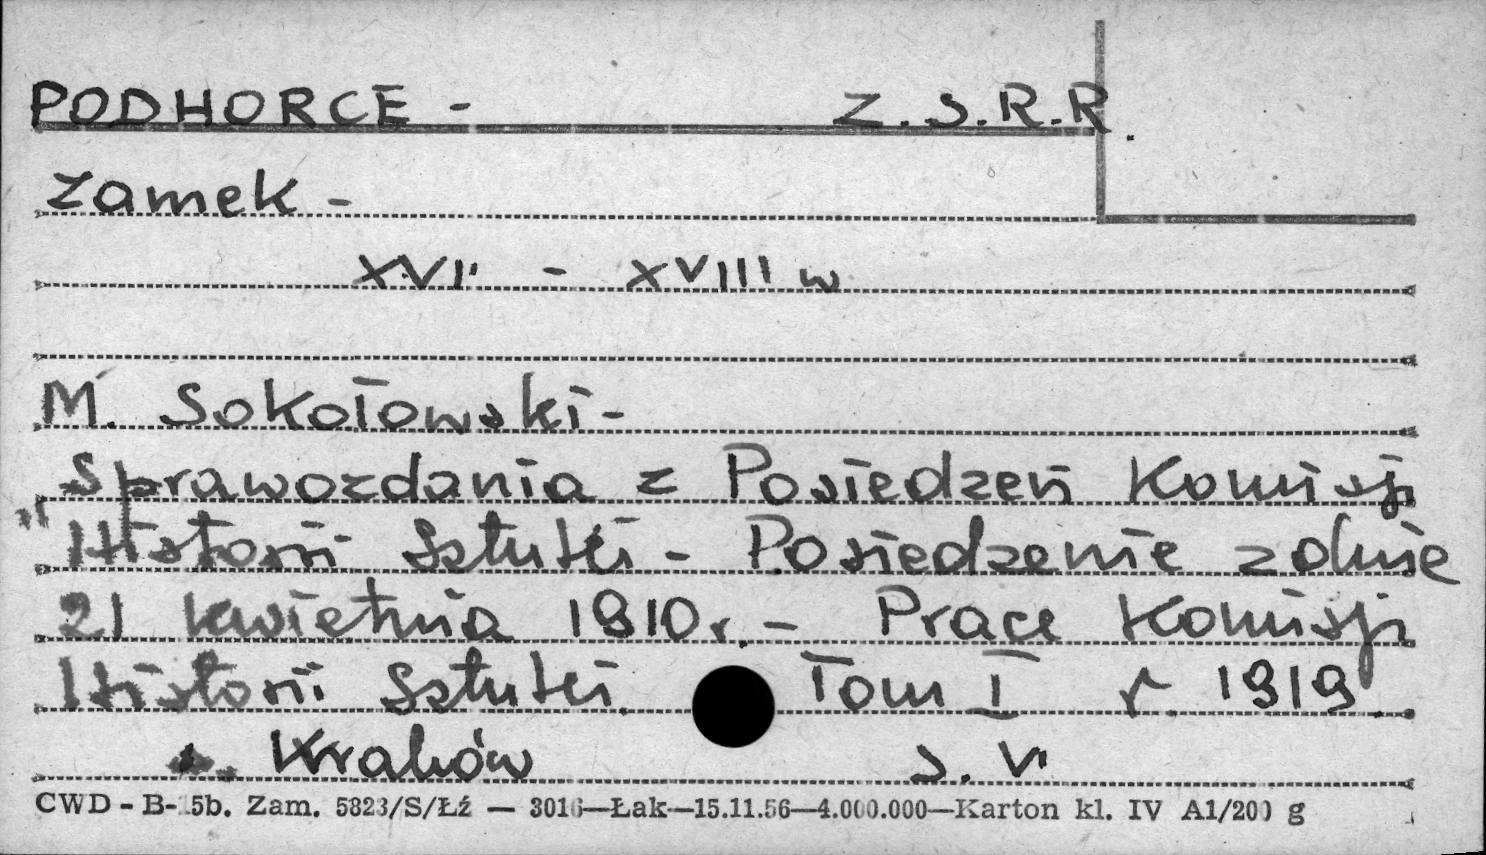 PODHORCE - Z.S.R.R.
Zamek -
XVII - XVIII w
M. Sokołowski -
Sprawozdania z Posiedzeń Komisji
"Historii Sztuki - Posiedzenie z dnie
21 kwietnia 1910 r. - Prace Komisji
Historii Sztuki. Tom I r 1919.
Kraków s. VI
CWD - B-15b. Zam. 5823/S/Łź — 3016—Łak—15.11.56—4.000.000—Karton kl. IV A1/200 g